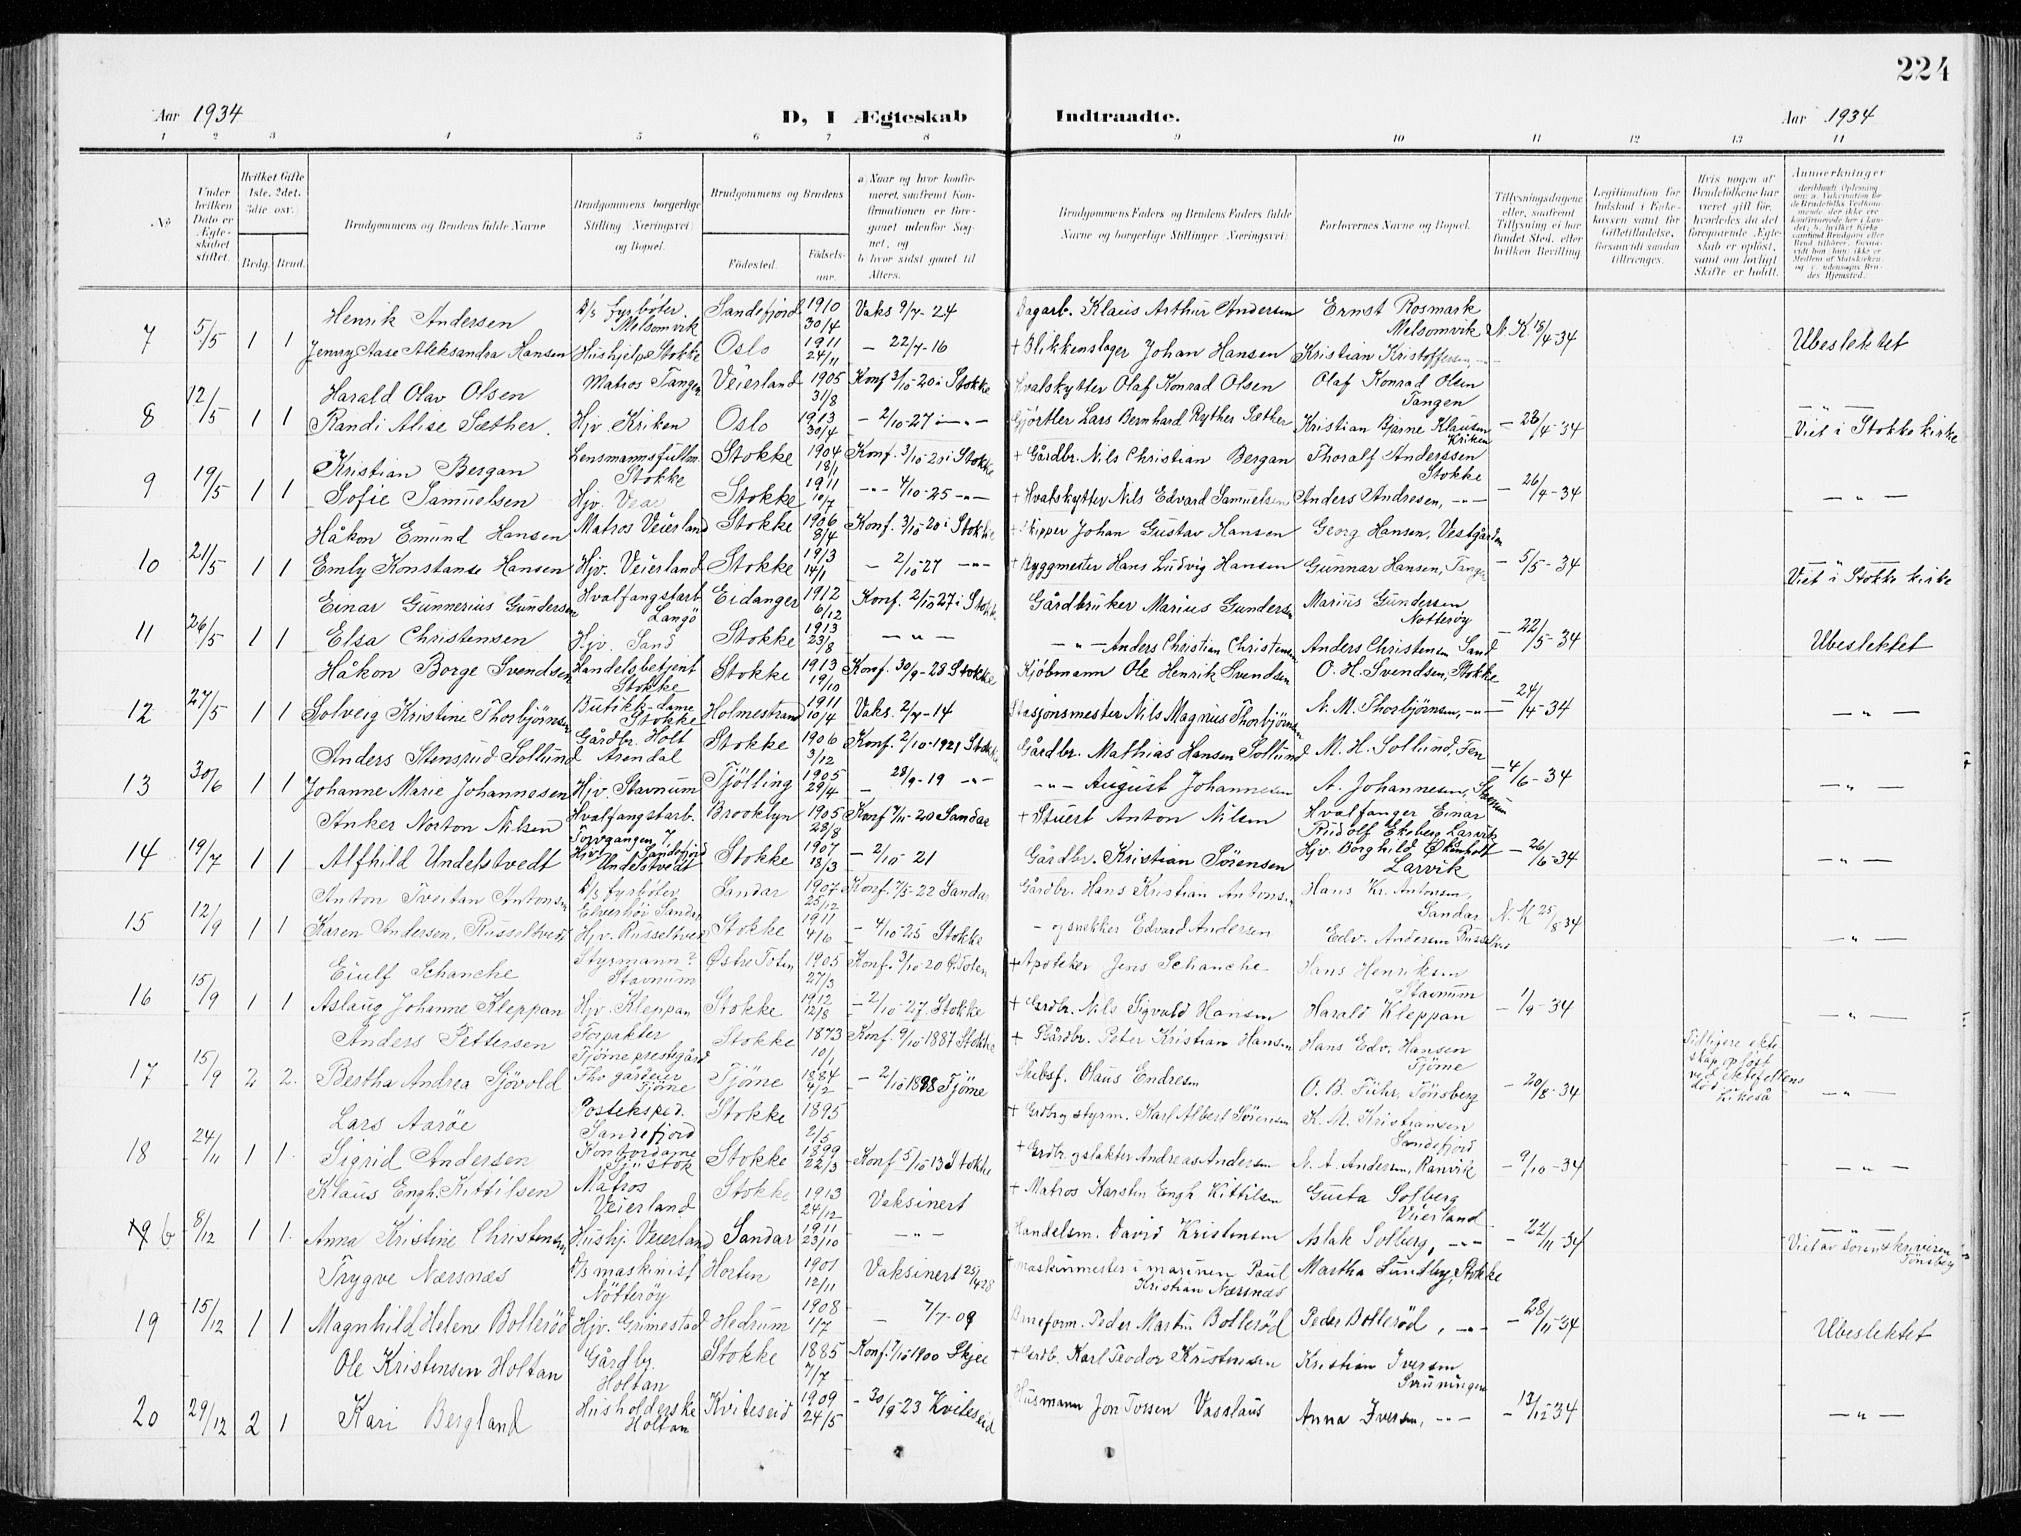 224
Aar 1934 D, I Ægteskab Indtraadte. Aar 1934
1 2 3 4 5 6 7 8 9 10 11 12 13 14
No
Under hvilken Dato er Ægteskabet stiftet.
Hvilket Gifte 1ste, 2det, 3die osv.
Bedg. Brud.
Brudgommens og Brudens fulde Navne
Brudgommens borgerlige Stilling (Næringsvei) og Bopæl.
Brudgommens og Brudens
Födested. Födselsaar.
a) Naar og hvor konfirmeret, saafremt Konfirmationen er foregaaet udenfor Sognet, og
b) hvor sidst gaaet til Alters.
Brudgommens Faders og Brudens Faders fulde Navne og borgerlige Stillinger (Næringsvei)
Forlovernes Navne og Bopæl.
Tillysningsdagene eller, saafremt Tillysning ei har fundet Sted, efter hvilken Bevilling
Legitimation for Indskud i Enkekassen samt for Giftetilladelse, forsaavidt saadan tiltrænges.
Hvis nogen af Brudefolkene har været gift før, hvorledes da det foregaaende Ægteskab er opløst, samt om lovligt Skifte er holdt.
Anmærkninger
7 5/5 1 1 Henrik Andersen D/s fyrböter Melsomvik Sandefjord 1910 30/4 Vaks 9/7-24 Dagarb. Klaus Arthur Andersen Ernst Rosmark Melsomvik N.K. 15/4-34
Jenny Aase Aleksandra Hansen Hushjelp Stokke Oslo 1911 24/11 — 22/7-16 + Blikkenslager Johan Hansen Kristian Kristoffersen, -„- Ubeslektet
8 12/5 1 1 Harald Olav Olsen Matros Tangen Veierland 1905 31/8 Konf 3/10-20 i Stokke Hvalskytter Olaf Konrad Olsen Olaf Konrad Olsen Tangen
Randi Alise Sæther Hjv. Kriken Oslo 1913 30/4 — 2/10-27 i -„- Gjørtler Lars Bernhard Ryther Sæther Kristian Bjarne Klausen Kriken — 23/4-34 — „ — Viet i Stokke kirke
9 19/5 1 1 Kristian Bergan Lensmannsfullm. Stokke Stokke 1904 18/1 Konf. 3/10-20 i Stokke + Gårdbr. Nils Christian Bergan Thoralf Anderssen Stokke
Sofie Samuelsen Hjv. Vear Stokke 1911 10/7 -„- 4/10-25 -„- + Hvalskytter Nils Edvard Samuelsen Anders Andresen, -„- — 26/4-34 — „ —
10 21/5 1 1 Håkon Emund Hansen Matros Veierland Stokke 1906 8/4 Konf. 3/10-20 i Stokke + Skipper Johan Gustav Hansen Georg Hansen, Vestgården
Emly Konstanse Hansen Hjv. Veierland Stokke 1913 14/1 — 2/10-27 -„- + Byggmester Hans Ludvig Hansen Gunnar Hansen, Tangen — 5/5-34 — „ — Viet i Stokke kirke
11 26/5 1 1 Einar Gunnerius Gundersen Hvalfangstarb. Langö Eidanger 1912 6/12 Konf. 2/10 27 i Stokke Gårdbruker Marius Gundersen Marius Gundersen Nøtterøy
Elsa Christensen Hjv. Sand Stokke 1913 23/8 — „ — -„- Anders Christian Christensen Anders Christensen Sand — 22/5-34 Ubeslektet
12 27/5 1 1 Håkon Borge Svendsen Handelsbetjent Stokke Stokke 1913 19/10 Konf. 30/9-28 Stokke Kjöbmann Ole Henrik Svendsen O. H. Svendsen, Stokke
Solveig Kristine Thorbjörnsen Butikkdame Stokke Holmestrand 1911 10/4 Vaks. 2/7-14 Stasjonsmester Nils Magnus Thorbjörnsen N. M. Thorbjörnsen, -„- — 24/4-34 — „ —
13 30/6 1 1 Anders Stensrud Sollund Gårdbr. Holt Arendal Stokke 1906 3/12 Konf. 2/10-1921 Stokke Gårdbr. Mathias Hansen Sollund M. H. Sollund, Fen
Johanne Marie Johannesen Hjv. Stavnum Tjölling 1905 29/4 — 28/9-19 -„- -„- August Johannesen A. Johannesen, Stavnum — 4/6-34 — „ —
14 19/7 1 1 Anker Norton Nilsen Hvalfangstarb. Torvgangen 7, Sandefjord Brooklyn 1905 28/8 Konf 7/11-20 Sandar + Stuert Anton Nilsen Hvalfanger Einar Rudolf Ekeberg Larvik
Alfhild Undelstvedt Hjv. Undelstvedt Stokke 1907 18/3 — 2/10-21 Gårdbr. Kristian Sörensen Hjv. Borghild Økenholt Larvik — 26/6-34 — „ —
15 12/9 1 1 Anton Tveitan Antonsen D/s fyrböter Elverhöi Sandar Sandar 1907 25/12 Konf. 7/5-22 Sandar Gårdbr. Hans Kristian Antonsen Hans Kr. Antonsen, Sandar
Karen Andersen, Russeltvedt Hjv. Russeltvedt Stokke 1911 4/6 — 4/10-25 Stokke — og snekker Edvard Andersen Edv. Andersen Russeltvedt N. K. 25/8 34 — „ —
16 15/9 1 1 Eiulf Schanche Styrmann Stavnum Østre Toten 1905 27/3 Konf. 3/10-20 Ö. Toten + Apoteker Jens Schanche Hans Henriksen Stavnum
Aslaug Johanne Kleppan Hjv. Kleppan Stokke 1912 12/8 — 2/10-27. Stokke + Grdbr. Nils Sigvald Hansen Harald Kleppan — 1/9-34 — „ —
17 15/9 2 2. Anders Pettersen Forpakter Tjöme prestegård Stokke 1873 10/1 Konf. 9/10-1887 Stokke + Gårdbr. Peter Kristian Hansen Hans Edv. Hansen Tjöme
Bertha Andrea Sjövold Tjöme Tjöme 1884 4/2 — 2/10 1898 Tjöme Skibsf. Olaus Endresen O. B. Führ, Tönsberg — 20/8-34 Tidligere ekteskap opløst ved ektefellens död. Likeså — „ —
18 24/11 1 1 Lars Aaröe Postekspd. Sandefjord Stokke 1895 2/5 + Grdbr og styrm. Karl Albert Sörensen K. M. Kristiansen Sandefjord
Sigrid Andersen Kontordame Stokke 1899 22/3 Konf 5/10-13 Stokke + Grdbr. og slakter Andreas Andersen N. A. Andersen, Ranvik — 9/10-34 — „ —
19 b 8/12 1 1. Klaus Engh. Kittilsen Matros Veierland Stokke 1913 24/12 Vaksinert + Matros Karsten Engh Kittilsen Gusta Solberg Veierland
Anna Kristine Christensen Hushj. Veierland Sandar 1911 23/10 — „ — Handelsm. David Kristensen Aslak Solberg, -„- — 22/11-34 — „ — Viet av sorenskriveren i Tönsberg
19 15/12 1 1 Trygve Nærsnæs D/s maskinist Nötteröy Horten 1901 12/11 Vaksinert 25/4 28 + maskinmester i marinen Paul Kristian Nærsnæs Martha Sundby, Stokke
Magnhild Helene Bolleröd Hjv. Grimestad Hedrum 1908 1/7 — 7/7-09 Bruseform. Peder Martin Bolleröd Peder Bolleröd, -„- — 28/11-34 Ubeslektet
20 29/12 2 1 Ole Kristensen Holtan Gårdbr. Holtan Stokke 1885 7/7 Konf. 7/10 1900 Skjee + Grdb. Karl Teodor Kristensen Kristian Iversen
Kari Bergland Husholderske Holtan Kviteseid 1909 24/5 — 30/9-23 Kviteseid Husmann Jon Tossen Vasslaus Anna Iversen, -„- — 13/12-34 — „ —